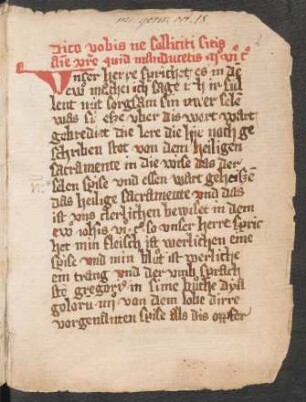 ms. germ. oct. 18.
Dico vobis ne solliciti sitis
aīe vr̄e quid manducetis
Unser herre sprichet es in de
ewā mathei ich sage
lent nit sorgsam sin uwer sele
was sie esse uber dis wort wart
gebrediet die lere die hie noch ge
schriben stot von dem heiligen
sacramente in die wise das der
selen spise und essen wart geheissen
das heilige sacramente und das
ist uns clerlichen bewiset in dem
ew iohis vi so unser herre spric
het min fleisch ist werlichen eine
spise und min blůt ist werliche
ein trang und der umb sprach
gregori in sime bůche dya
von dem lobe dirre
vorgenanten spise als dis opfer